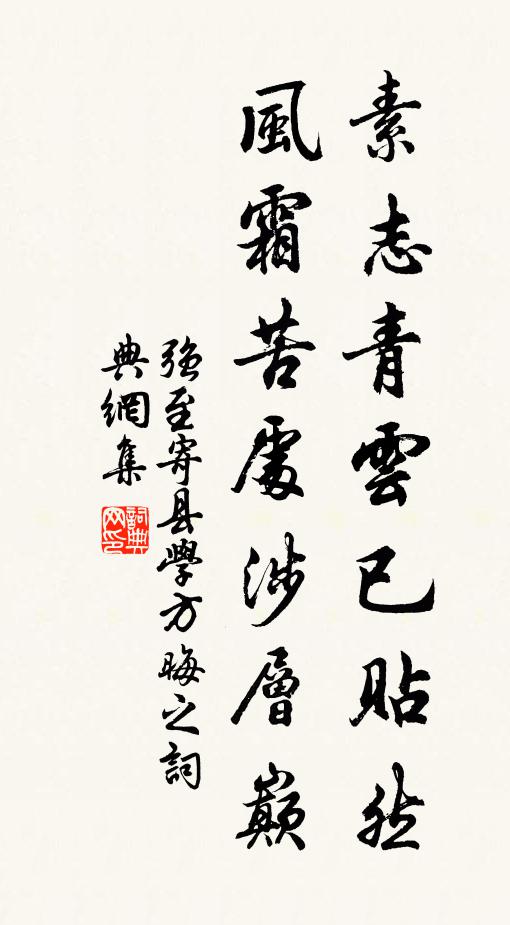 素志青雲已貼然
風霜苦處涉層巔
强至寄县學方晦之詞
典網集
詞典网印